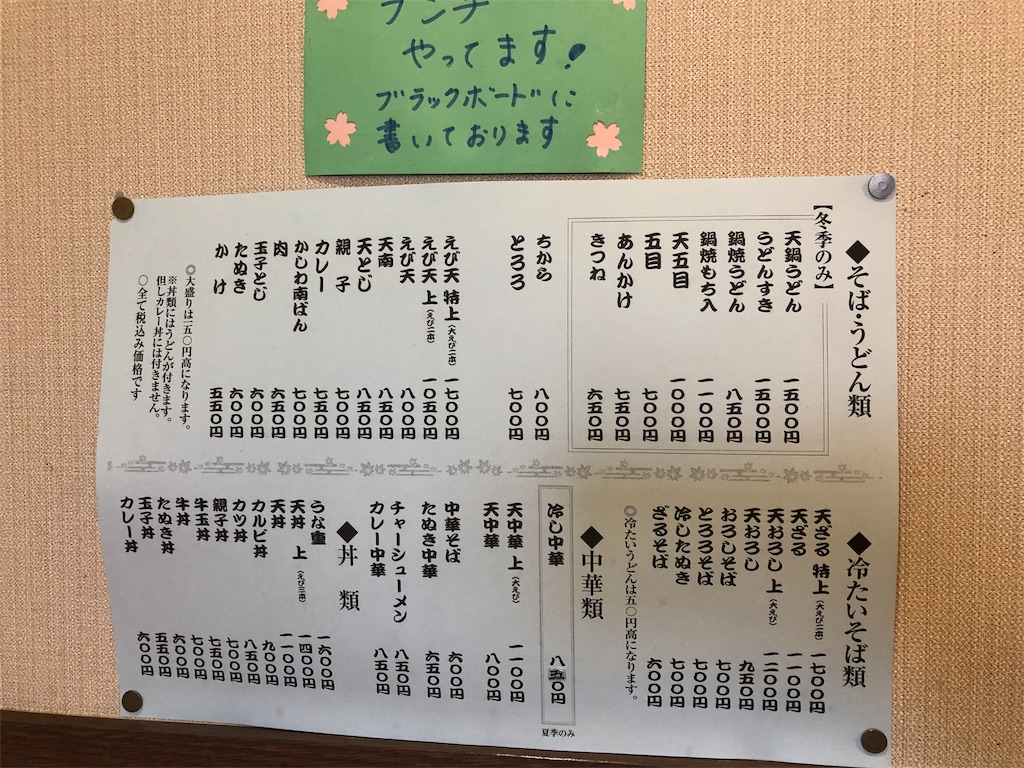 ランチ
やってます!
ブラックボードに
書いております
◆そば・うどん類
【冬季のみ】
天鍋うどん 一五〇〇円
うどんすき 一五〇〇円
鍋焼うどん 八五〇円
鍋焼もち入 一一〇〇円
天五目 一〇〇〇円
五目 七〇〇円
あんかけ 七五〇円
きつね 六五〇円
ちから 八〇〇円
とろろ 七〇〇円
えび天 特上(大えび二本) 一七〇〇円
えび天 上(えび二本) 一〇五〇円
えび天 八〇〇円
天南 八五〇円
天とじ 八五〇円
親子 七〇〇円
カレー 七五〇円
かしわ南ばん 七〇〇円
肉 六五〇円
玉子とじ 六〇〇円
たぬき 六〇〇円
かけ 五五〇円
◎大盛りは一五〇円高になります。
※丼類にはうどんが付きます。
但しカレー丼には付きません。
〇全て税込み価格です
◆冷たいそば類
天ざる 特上(大えび二本) 一七〇〇円
天ざる 一一〇〇円
天おろし 上(大えび) 一二〇〇円
天おろし 九五〇円
おろしそば 七〇〇円
とろろそば 七〇〇円
冷したぬき 七〇〇円
ざるそば 六〇〇円
◎冷たいうどんは五〇円高になります。
◆中華類
冷し中華 八五〇円
夏季のみ
天中華 上(大えび) 一一〇〇円
天中華 八〇〇円
中華そば 六〇〇円
たぬき中華 六五〇円
チャーシューメン 八五〇円
カレー中華 八五〇円
◆丼類
うな重 一六〇〇円
天丼 上(えび三本) 一四〇〇円
天丼 一一〇〇円
カルビ丼 九〇〇円
カツ丼 八五〇円
親子丼 七〇〇円
牛玉丼 七五〇円
牛丼 七〇〇円
たぬき丼 六〇〇円
玉子丼 五五〇円
カレー丼 六〇〇円